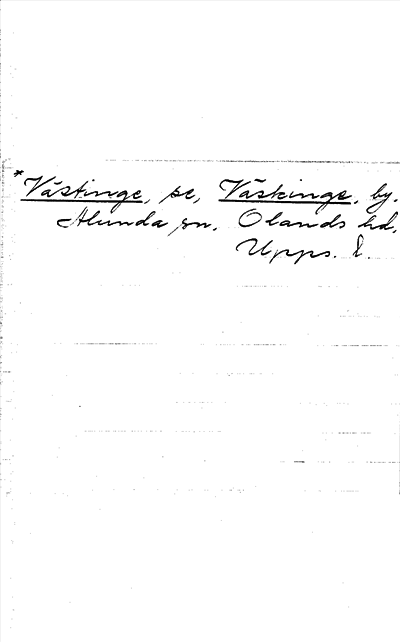 *Västinge, se, Väskinge, by,
Alunda sn, Olands hd,
Upps. l.